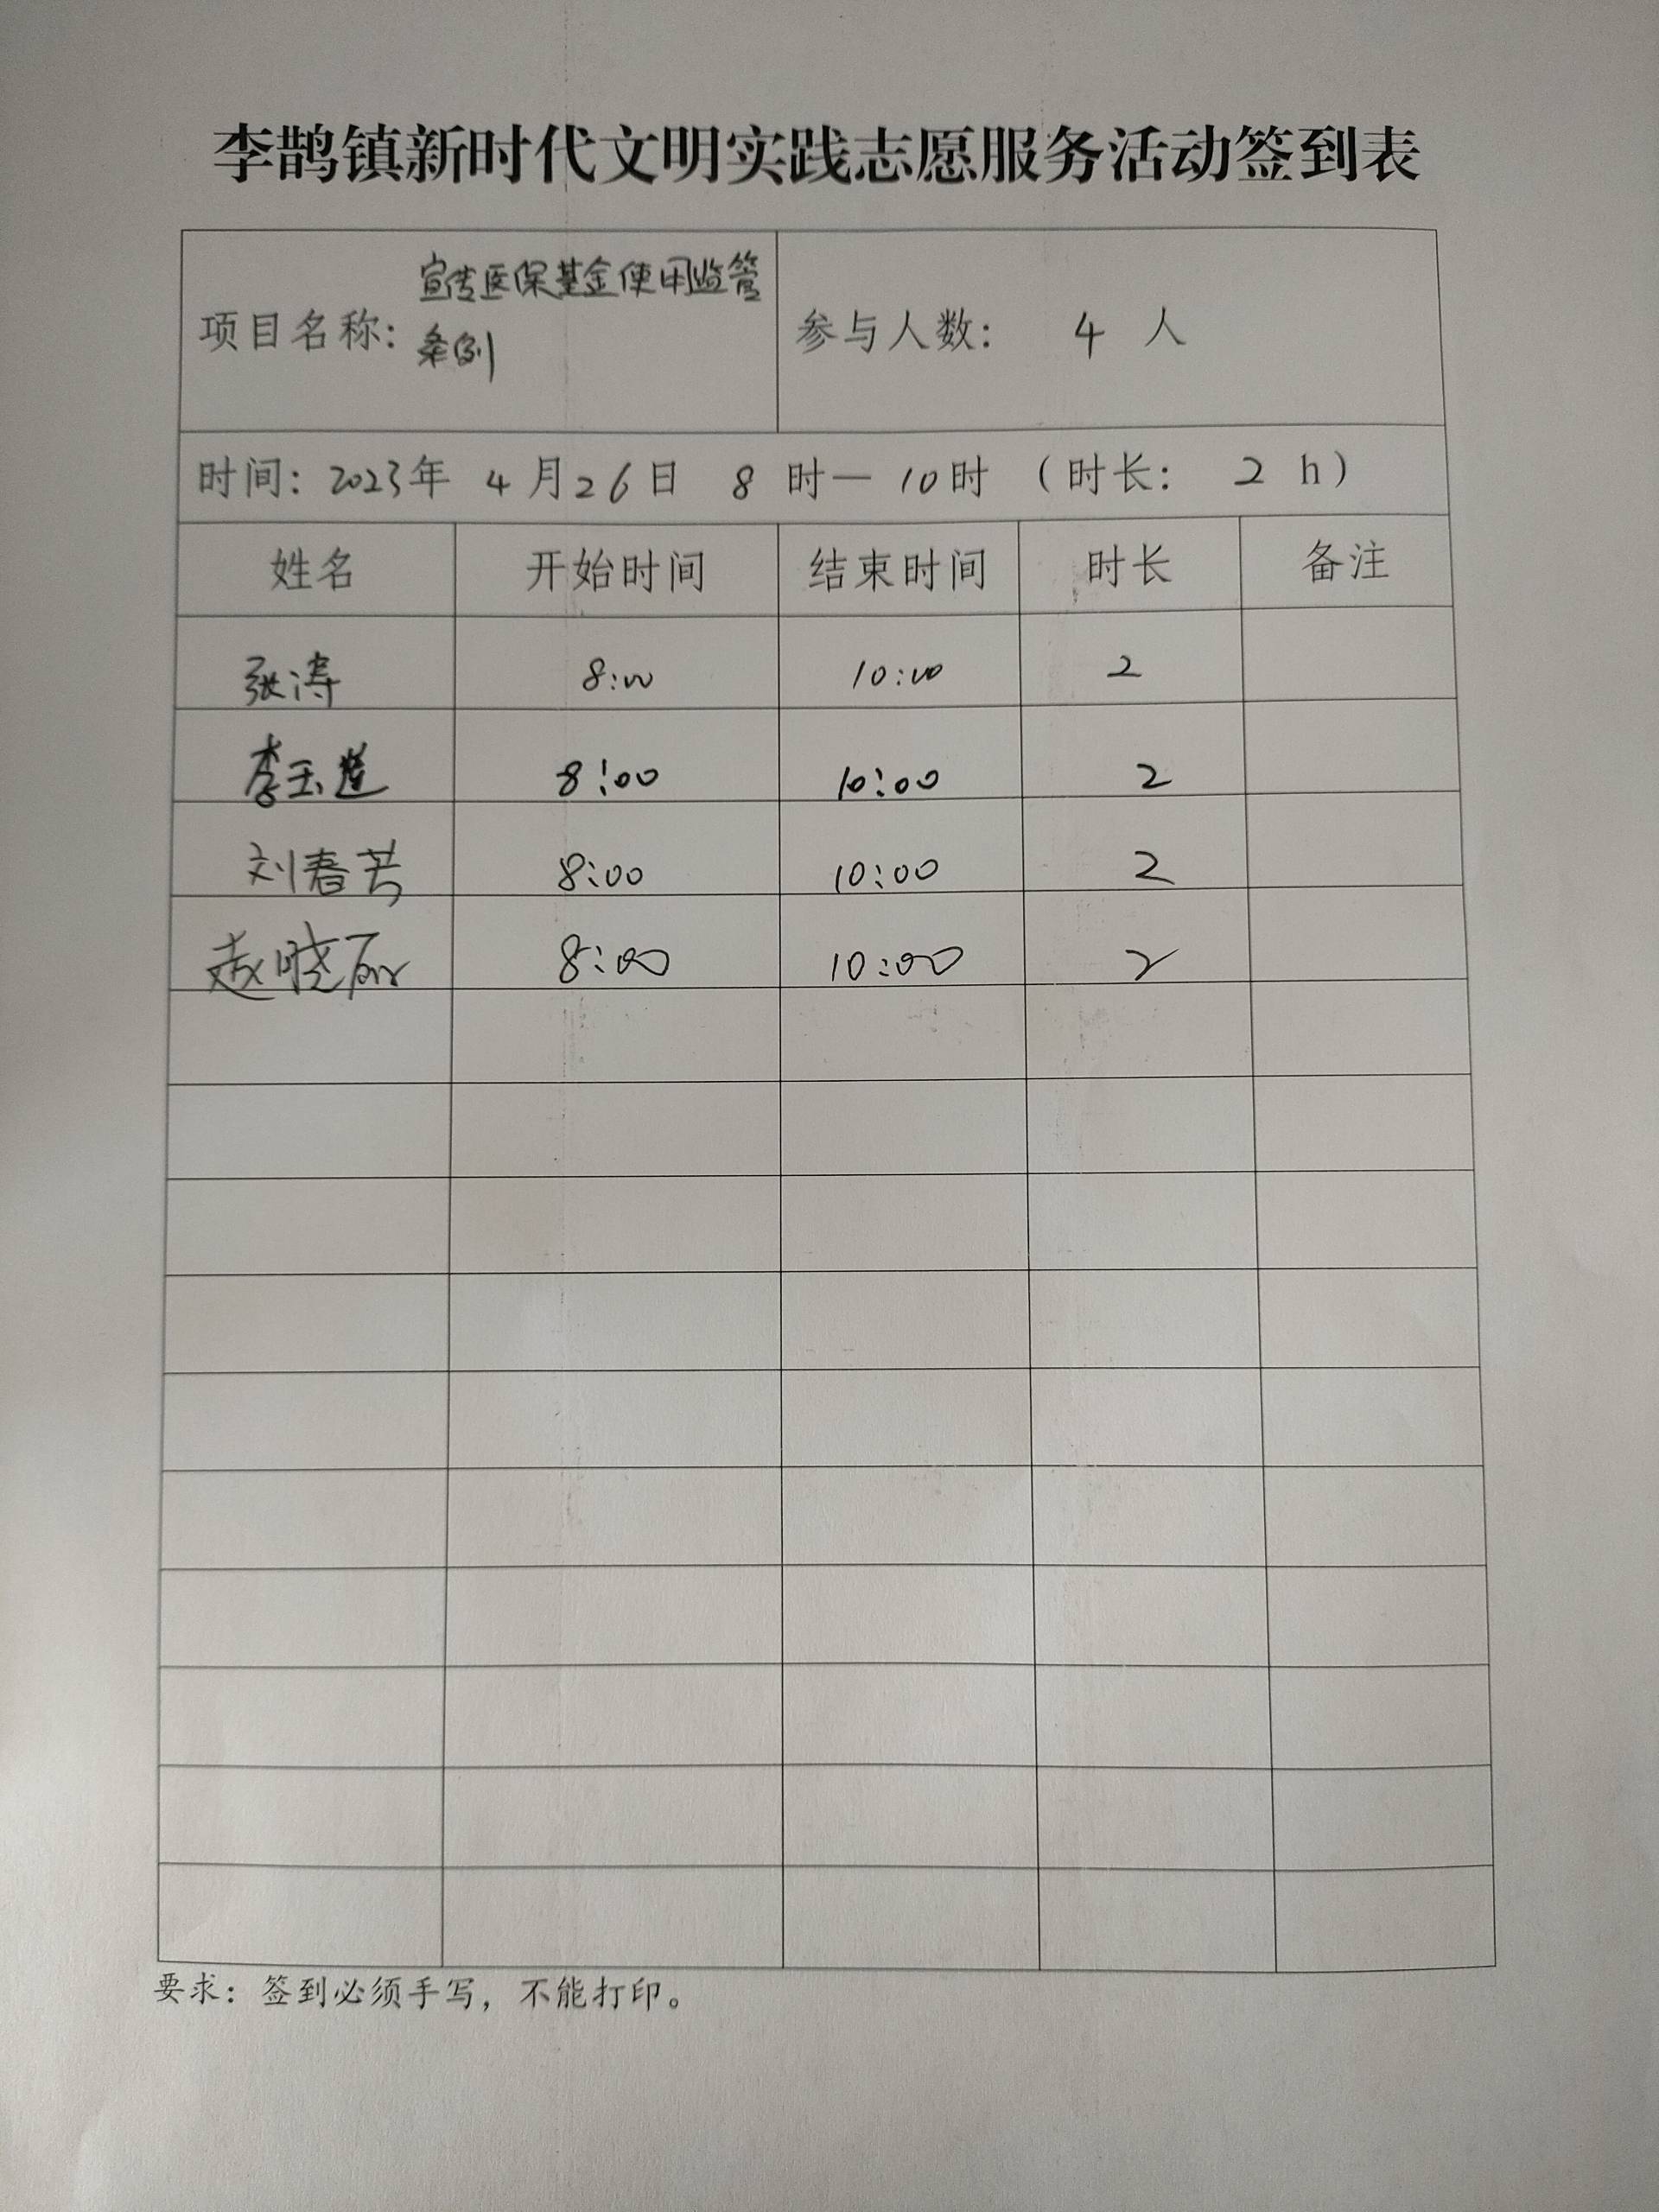 李鹊镇新时代文明实践志愿服务活动签到表
项目名称：宣传医保基金使用监管
条例
参与人数： 4 人
时间：2023年 4月26日 8 时— 10时 （时长： 2 h）
姓名 开始时间 结束时间 时长 备注
张涛 8:00 10:00 2
李玉莲 8:00 10:00 2
刘春芳 8:00 10:00 2
赵晓丽 8:00 10:00 2
要求：签到必须手写，不能打印。